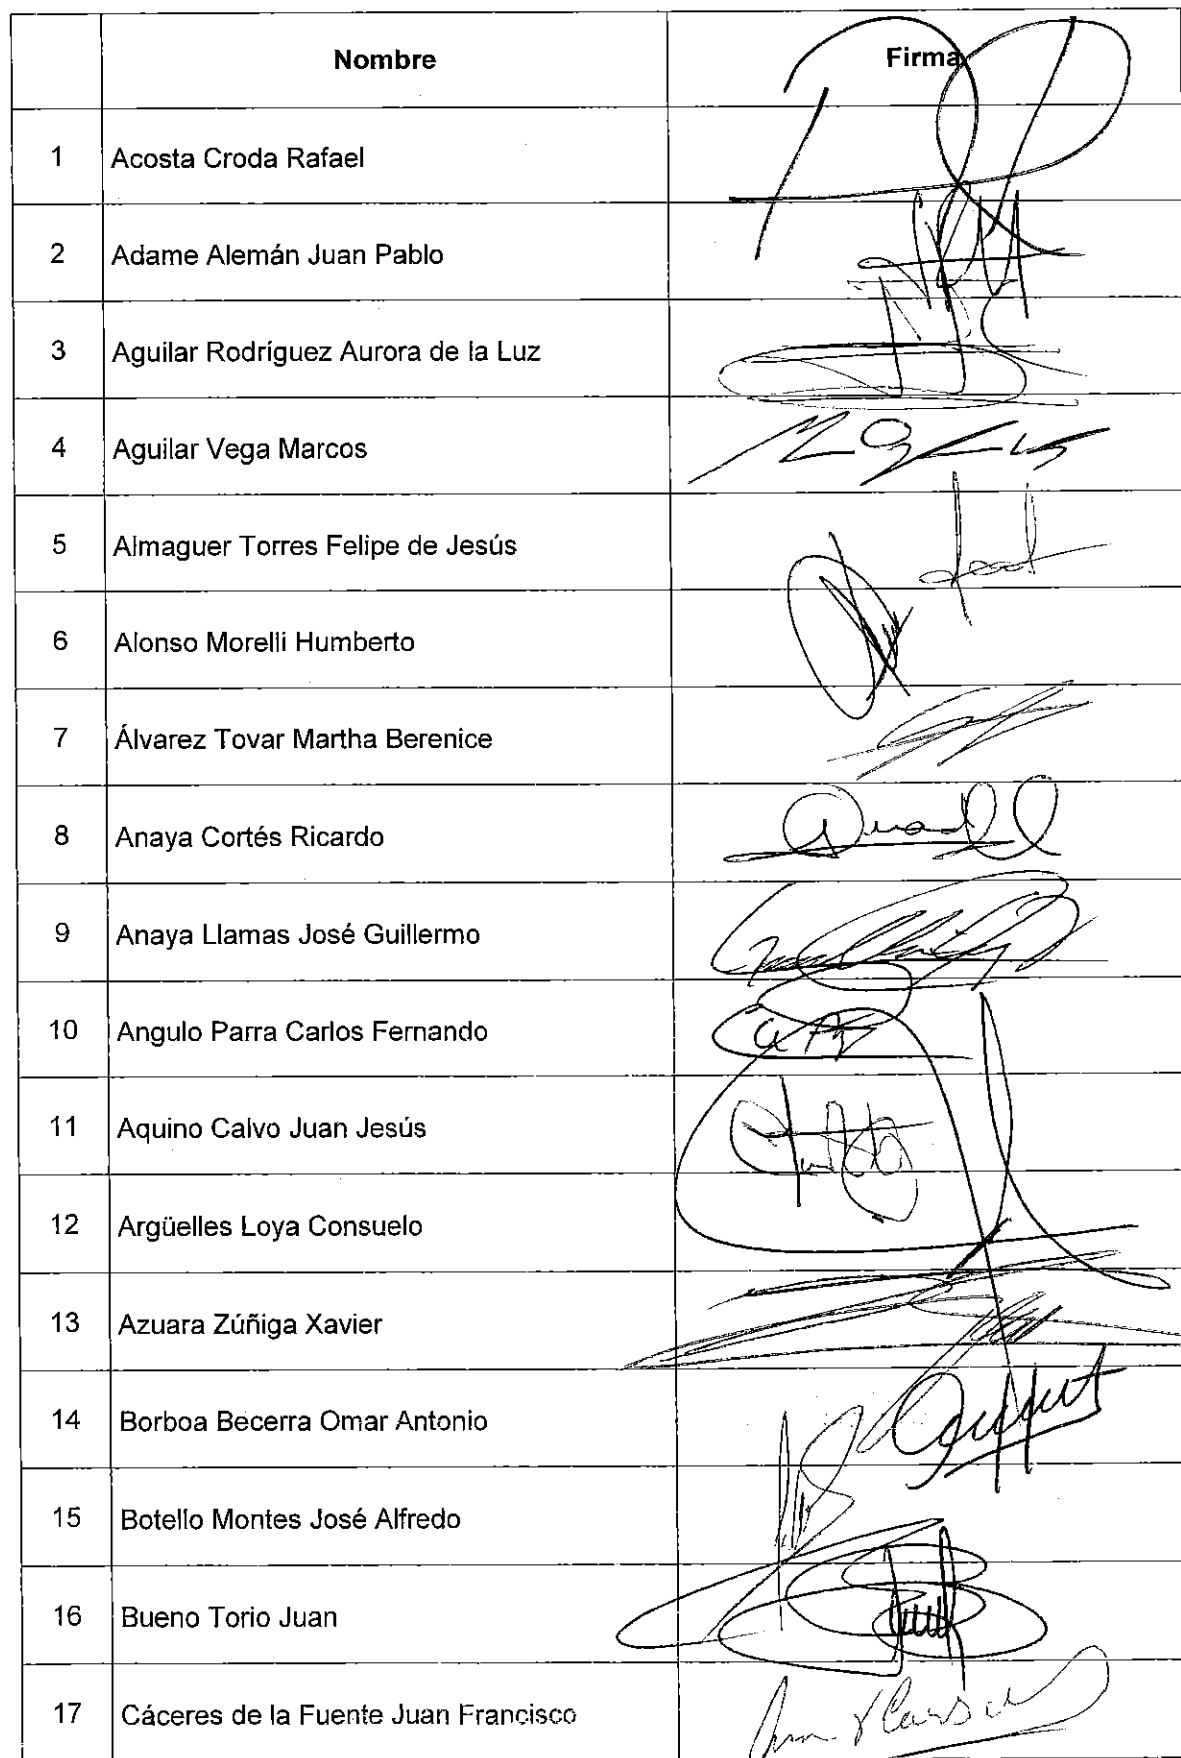 Nombre Firma
1 Acosta Croda Rafael
2 Adame Alemán Juan Pablo
3 Aguilar Rodríguez Aurora de la Luz
4 Aguilar Vega Marcos
5 Almaguer Torres Felipe de Jesús
6 Alonso Morelli Humberto
7 Álvarez Tovar Martha Berenice
8 Anaya Cortés Ricardo
9 Anaya Llamas José Guillermo
10 Angulo Parra Carlos Fernando
11 Aquino Calvo Juan Jesús
12 Argüelles Loya Consuelo
13 Azuara Zúñiga Xavier
14 Borboa Becerra Omar Antonio
15 Botello Montes José Alfredo
16 Bueno Torio Juan
17 Cáceres de la Fuente Juan Francisco